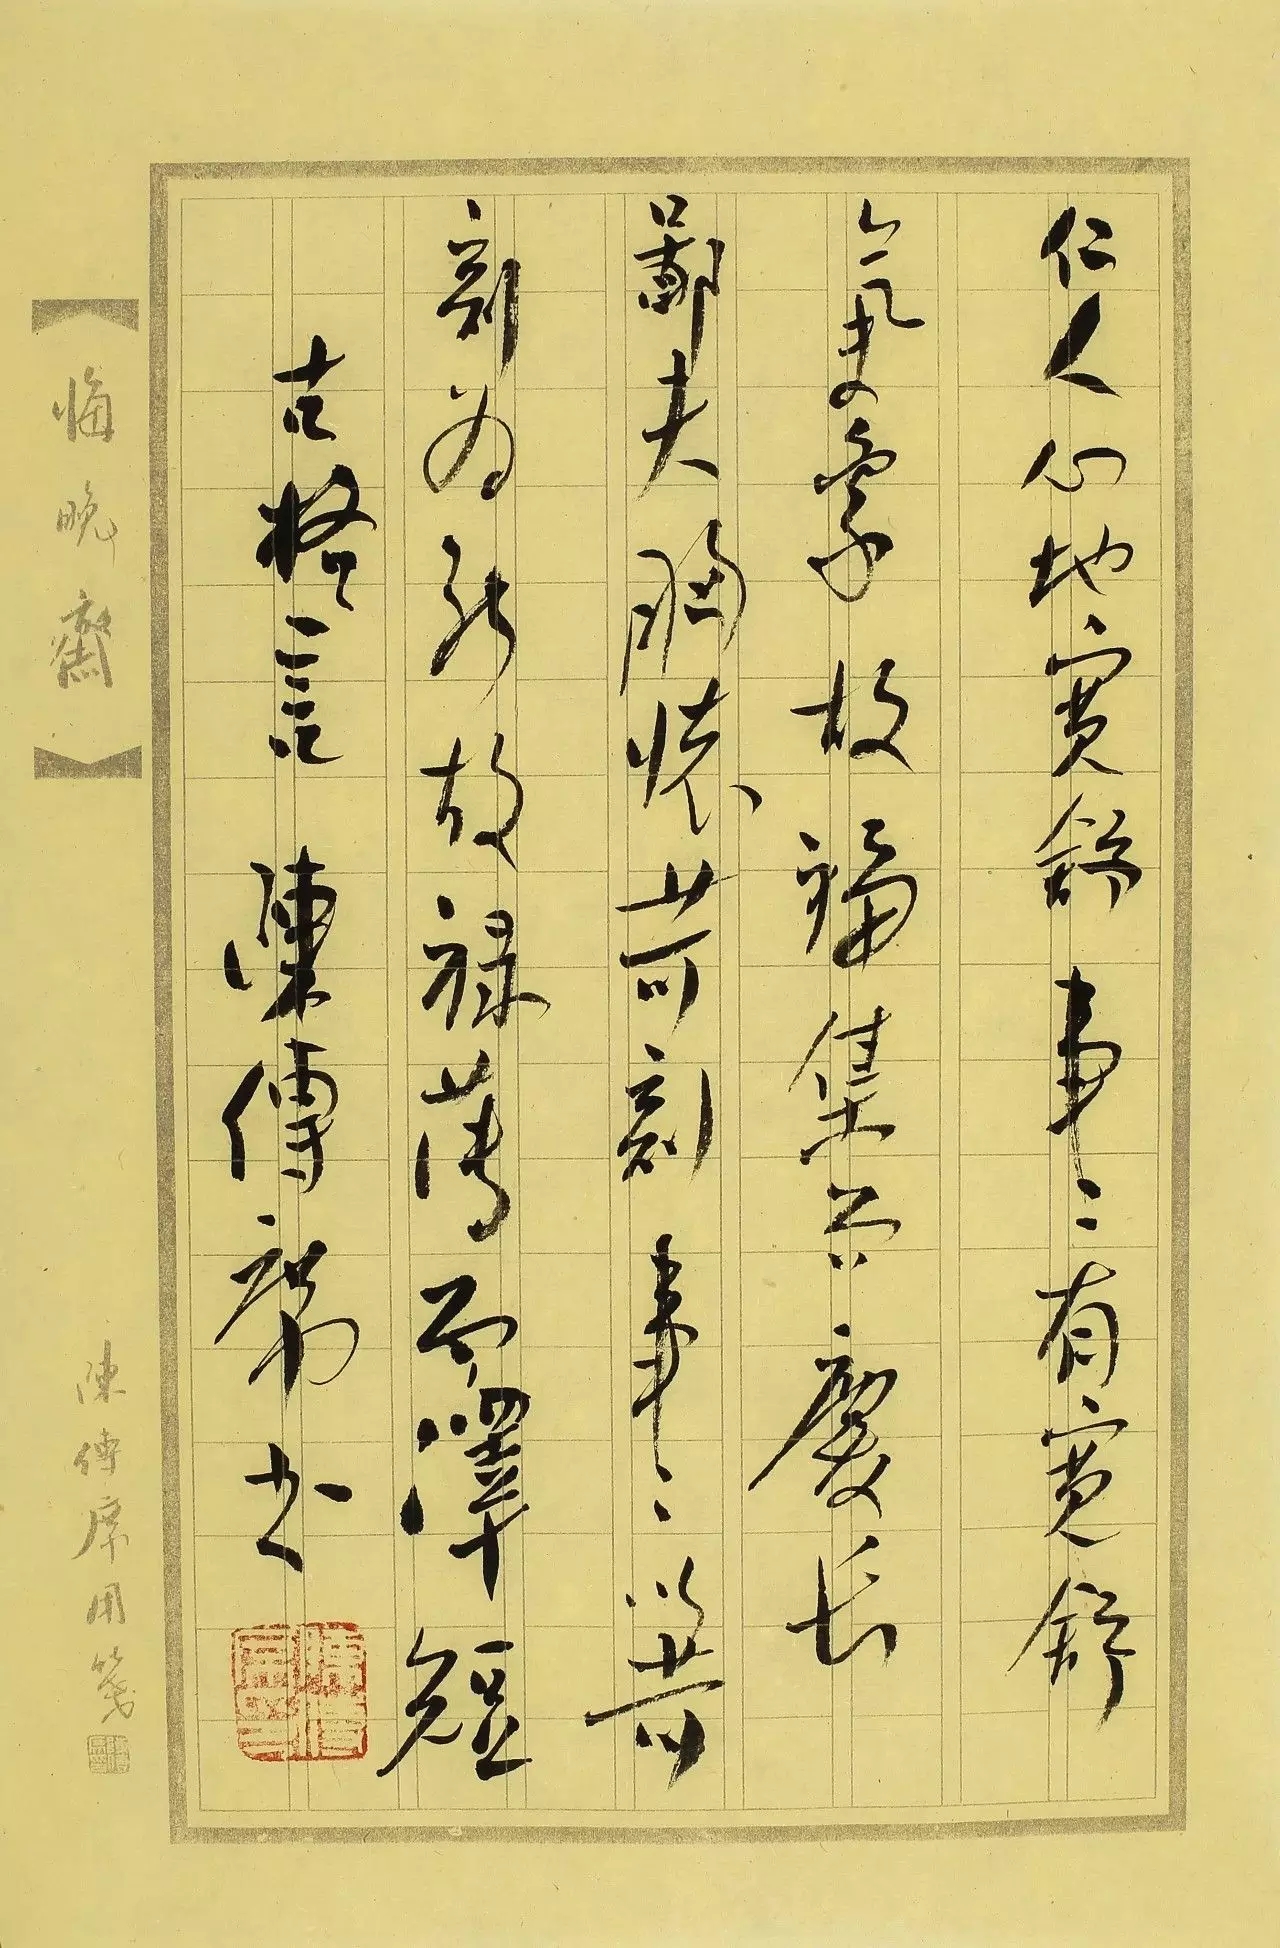 仁人心地寬舒事〻有寬舒
氣象故福集而慶长
鄙夫胸懷苛刻事〻以苛
刻为能故禄薄而澤短
古格言 陳傳席书
【悔晚齋】
陳傳席用箋